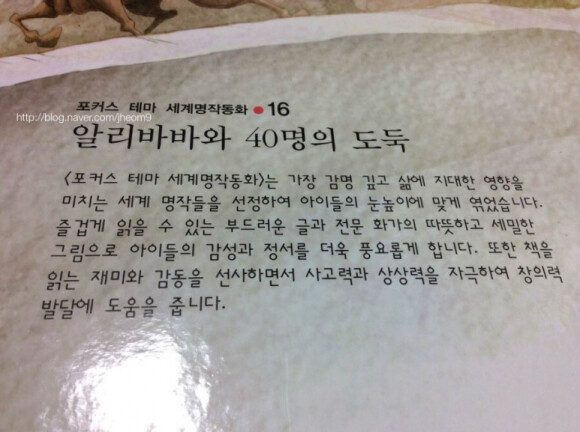 포커스 테마 세계명작동화 ● 16
http://blog.naver.com/jheom9
알리바바와 40명의 도둑
<포커스 테마 세계명작동화>는 가장 감명 깊고 삶에 지대한 영향을
미치는 세계 명작들을 선정하여 아이들의 눈높이에 맞게 엮었습니다.
즐겁게 읽을 수 있는 부드러운 글과 전문 화가의 따뜻하고 세밀한
그림으로 아이들의 감성과 정서를 더욱 풍요롭게 합니다. 또한 책을
읽는 재미와 감동을 선사하면서 사고력과 상상력을 자극하여 창의력
발달에 도움을 줍니다.